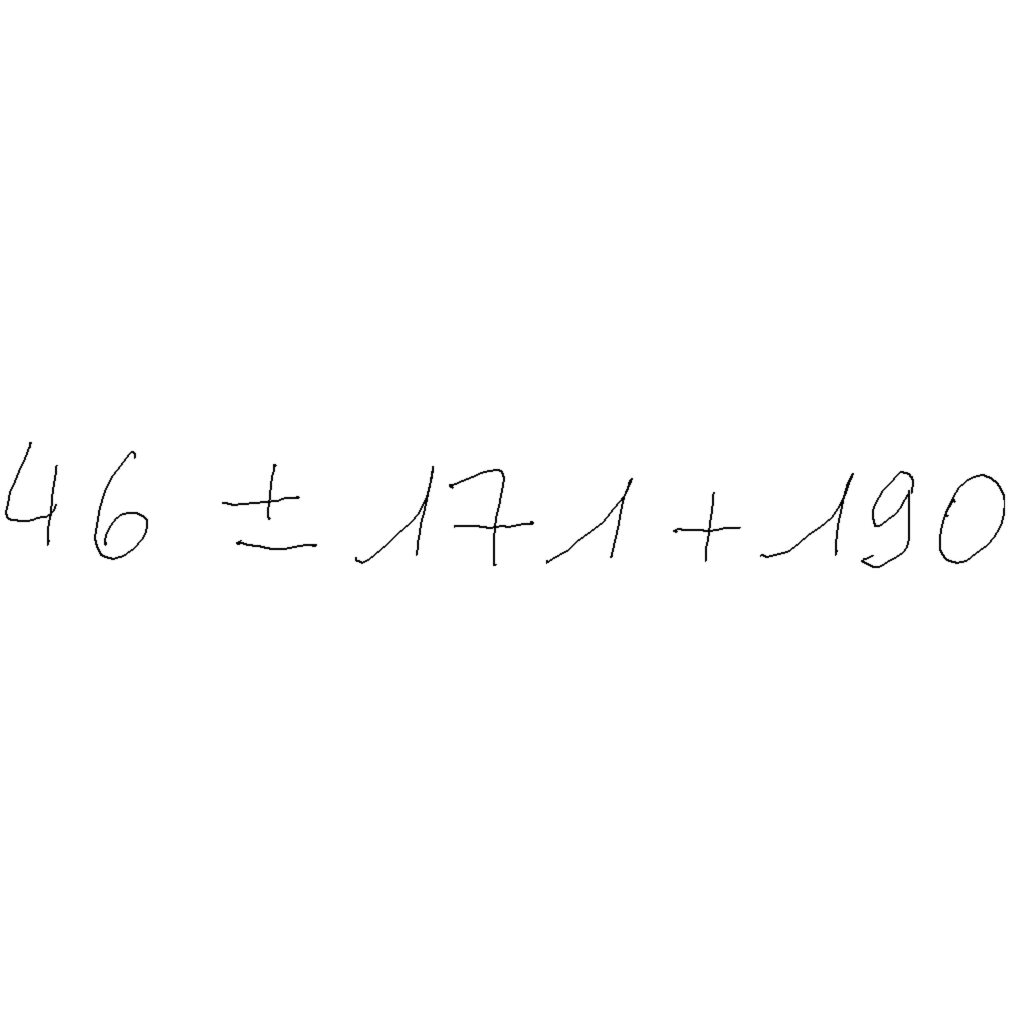 46 ± 171 + 190